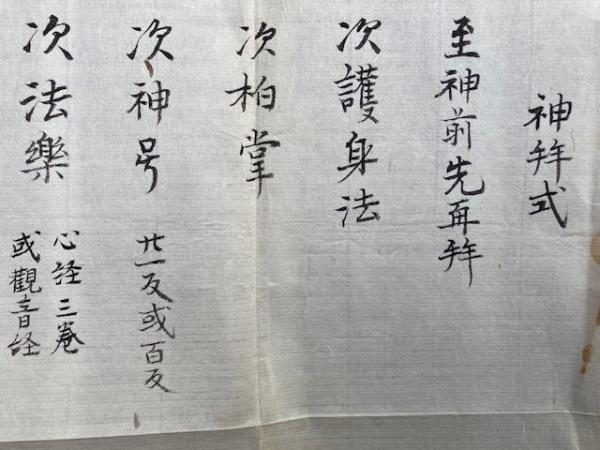 神拜式
至神前先再拜
次護身法
次柏掌
次神号
廿一反或百反
次法樂
心経三巻
或觀音経